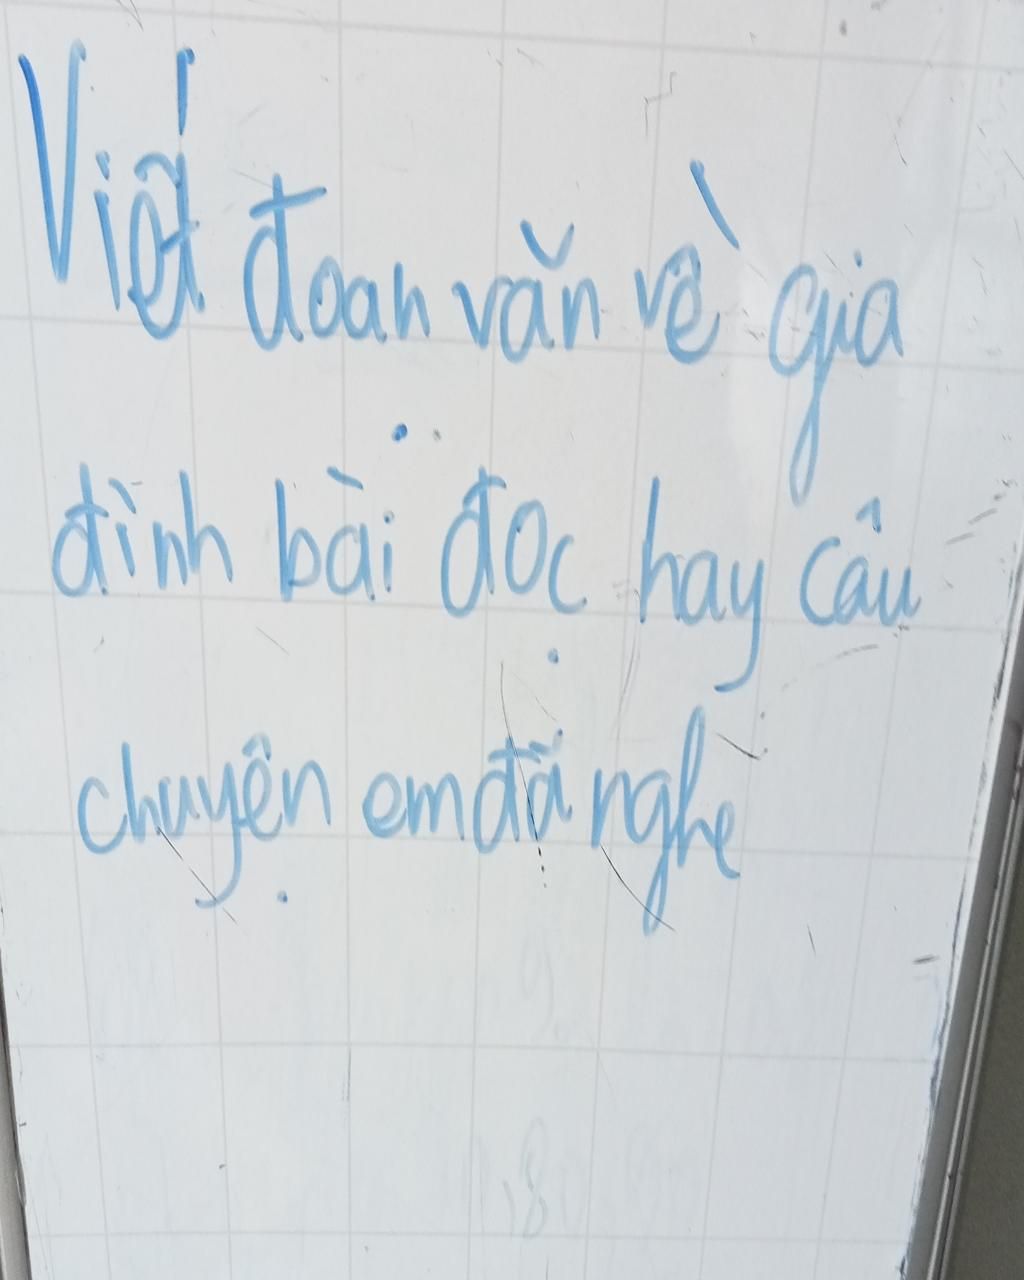 Viết đoạn văn về gia
đình bài đọc hay câu
chuyện em đã nghe